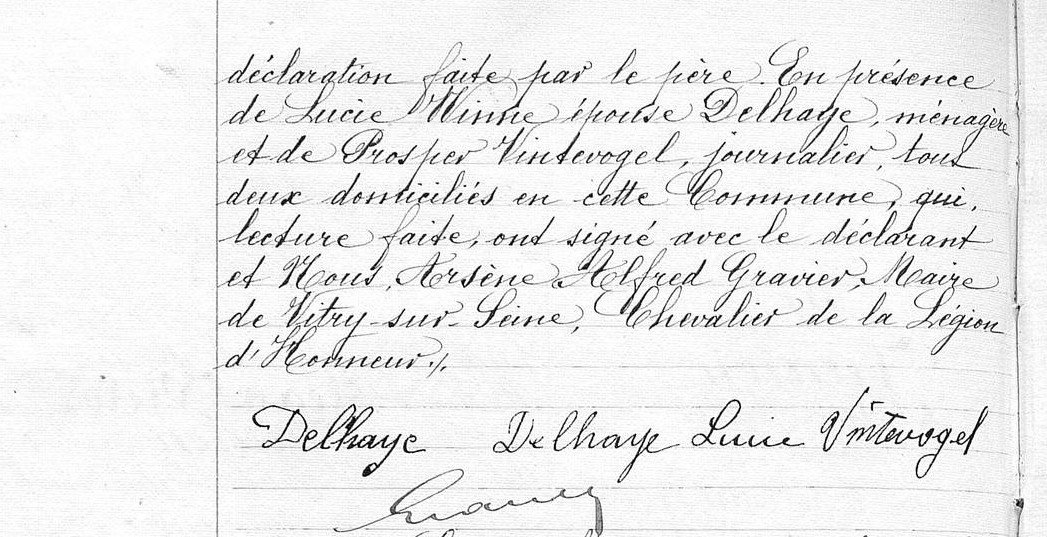 déclaration faite par le père. En présence
de Lucie Winne épouse Delhaye, ménagère
et de Prosper Vintevogel, journalier, tous
deux domiciliés en cette Commune, qui,
lecture faite, ont signé avec le déclarant
et Nous, Arsène Alfred Gravier, Maire
de Vitry-sur-Seine, Chevalier de la Légion
d'Honneur./.
Delhaye Delhaye Lucie Vintevogel